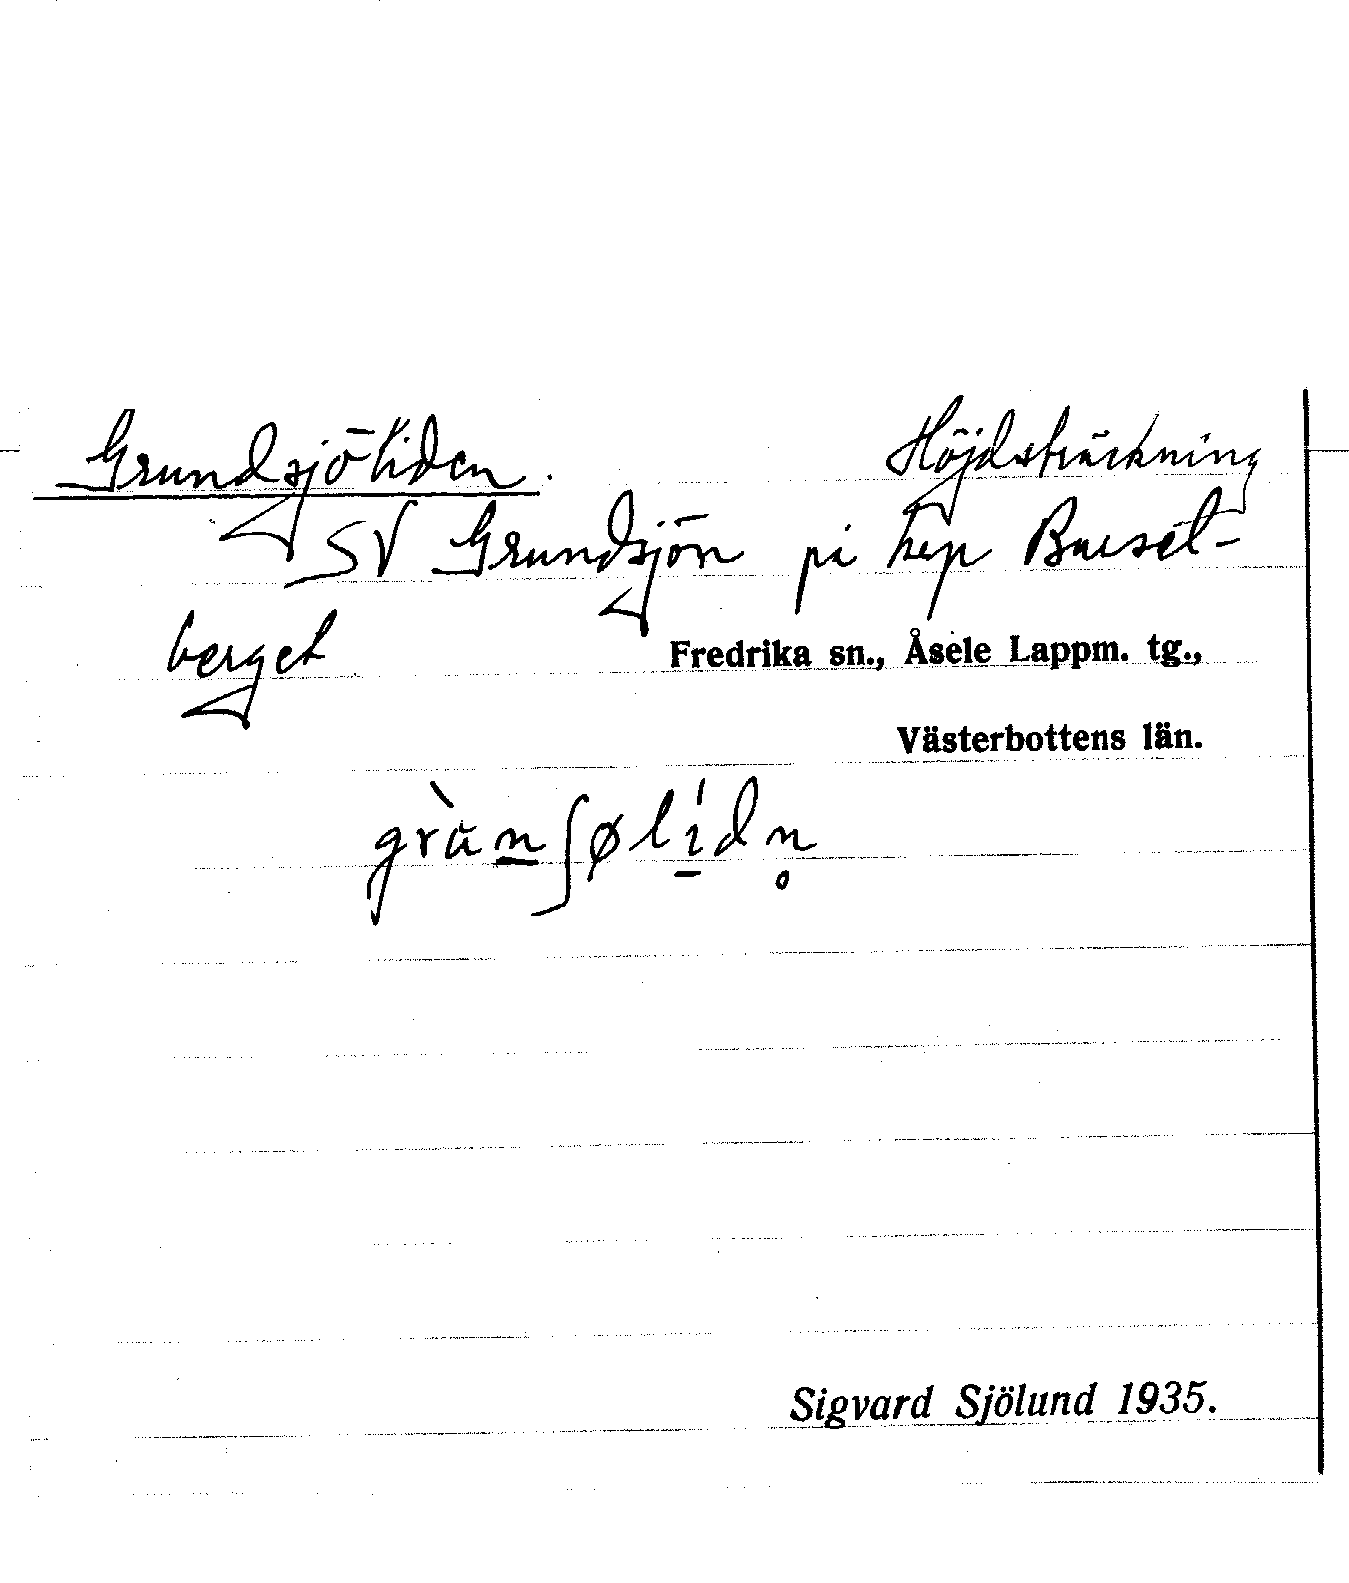 Grundsjöliden. Höjdsträckning
SV Grundsjön på kep Baeset-
berget
Fredrika sn., Åsele Lappm. tg.,
Västerbottens län.
grùn̲ʃølí̲dn̥
Sigvard Sjölund 1935.